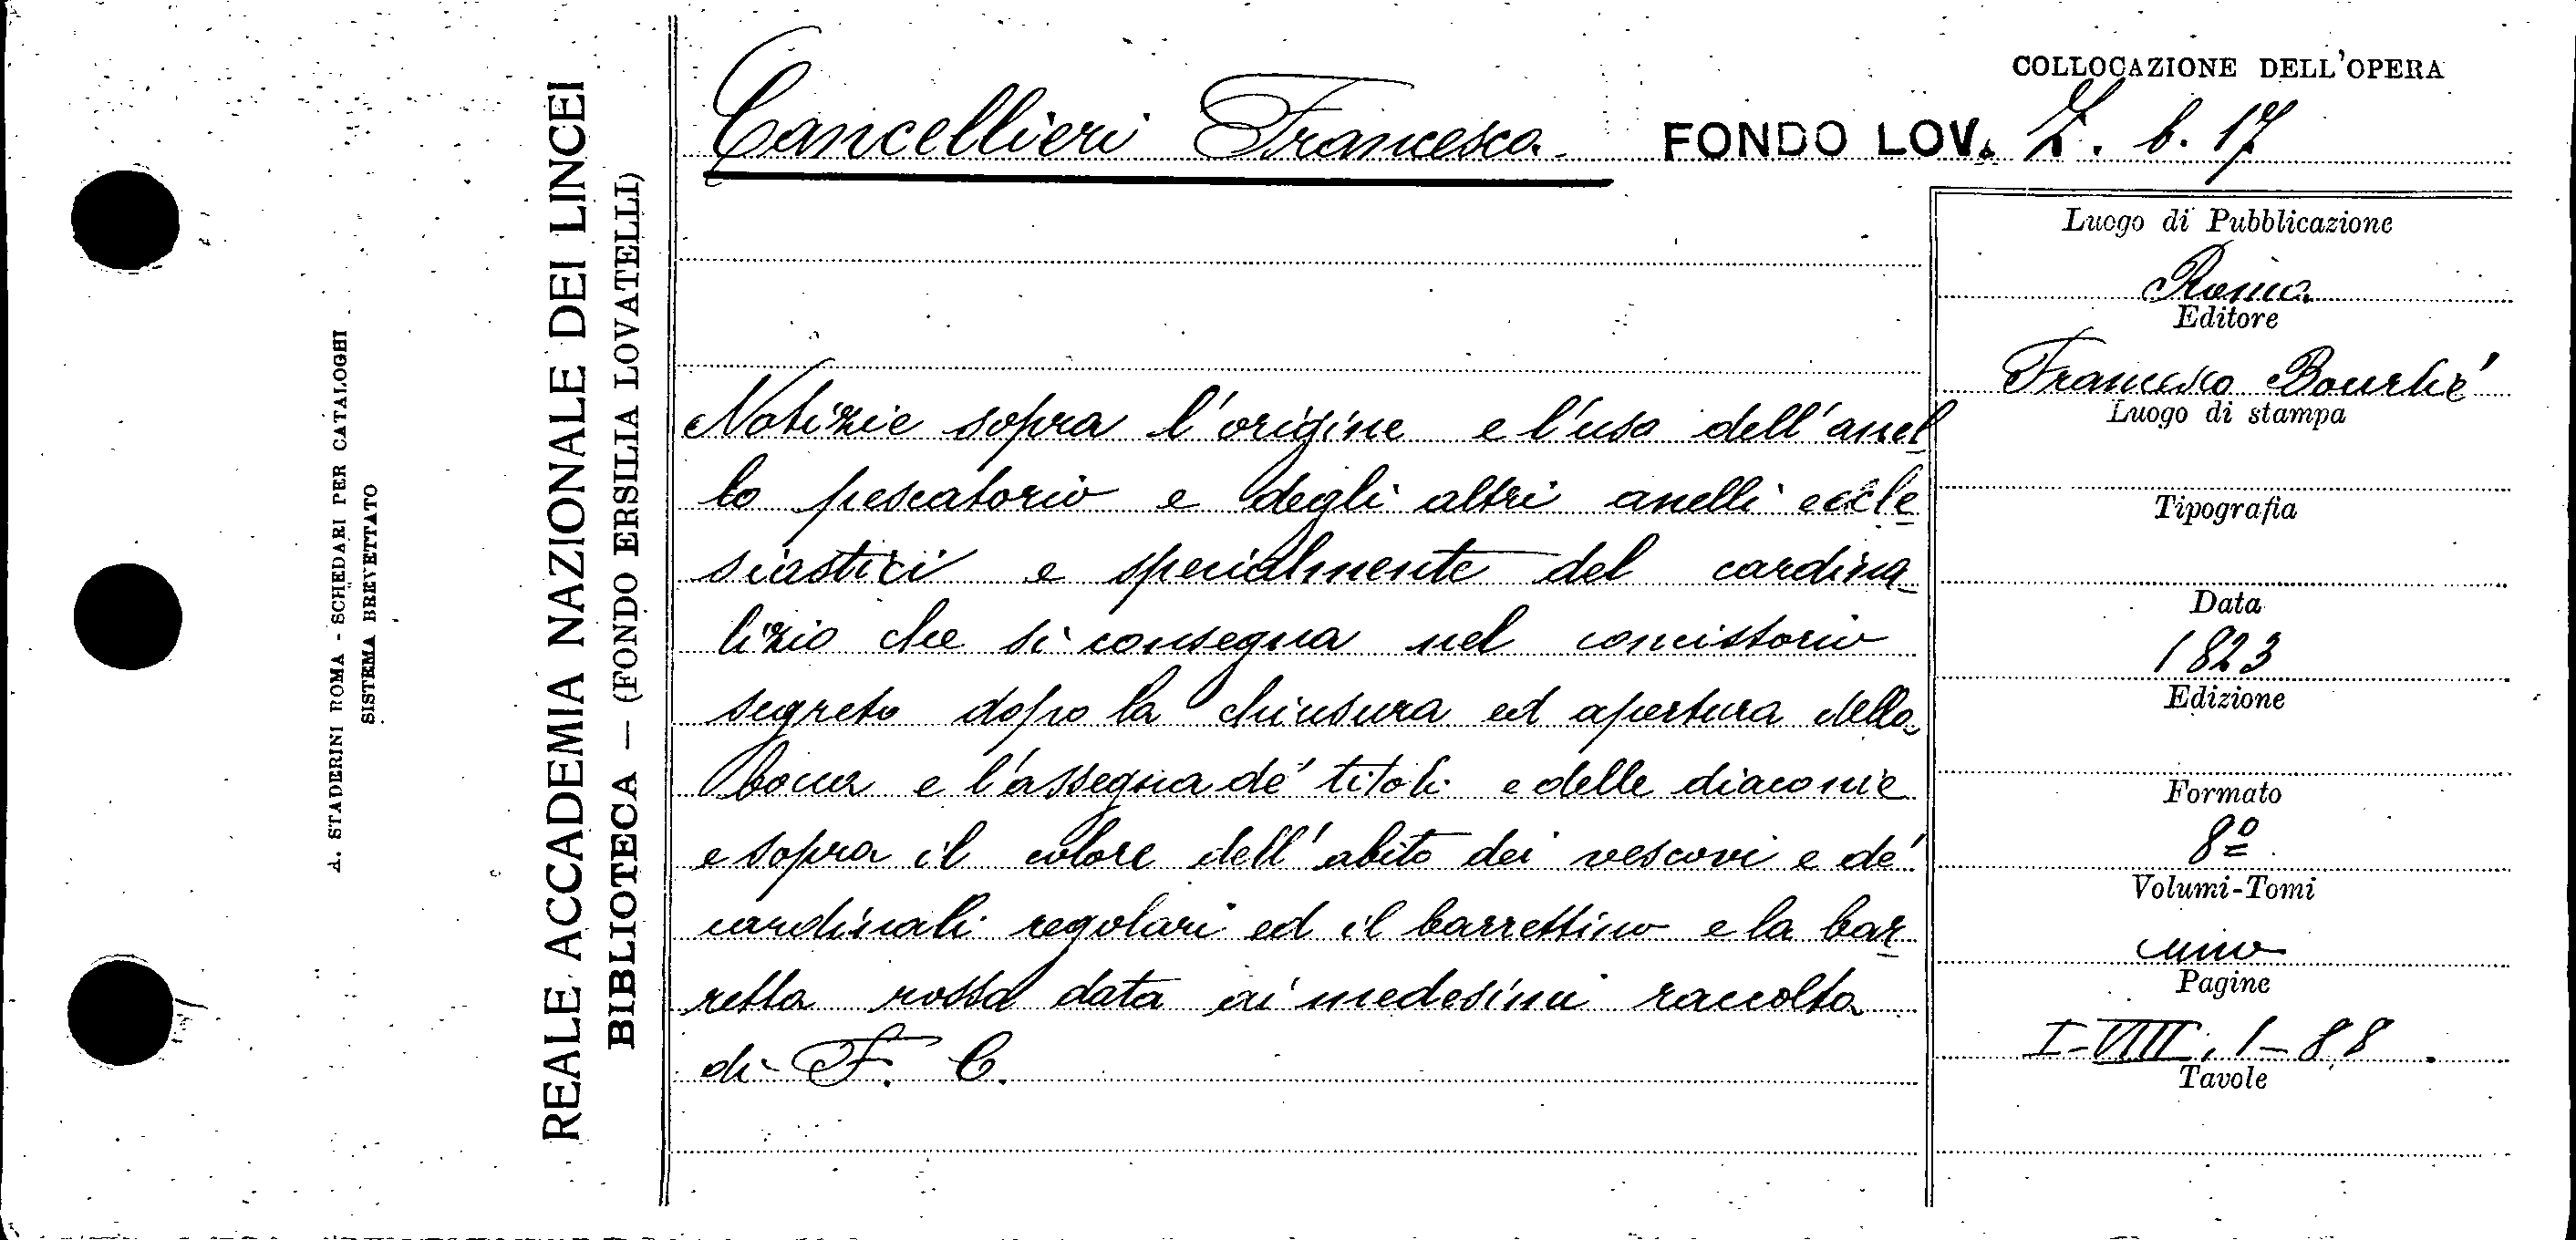 COLLOCAZIONE DELL'OPERA
Cancellieri Francesco FONDO LOV. Z. b. 17
Notizie sopra l'origine e l'uso dell'anel
lo pescatorio e degli altri anelli eccle
siastici e specialmente del cardina
lizio che si consegna nel concistorio
segreto dopo la chiusura ed apertura della
bocca e l'assegna de' titoli e delle diaconie
e sopra il colore dell'abito dei vescovi e de'
cardinali regolari ed il barrettino e la bar
retta rossa data ai medesimi raccolta
di F. C.
Luogo di Pubblicazione
Roma
Editore
Francesco Bourlié
Luogo di stampa
Tipografia
Data
1823
Edizione
Formato
8º
Volumi-Tomi
uno
Pagine
I-VIII, 1-88
Tavole
REALE ACCADEMIA NAZIONALE DEI LINCEI
BIBLIOTECA — (FONDO ERSILIA LOVATELLI)
A. STADERINI ROMA - SCHEDARI PER CATALOGHI
SISTEMA BREVETTATO